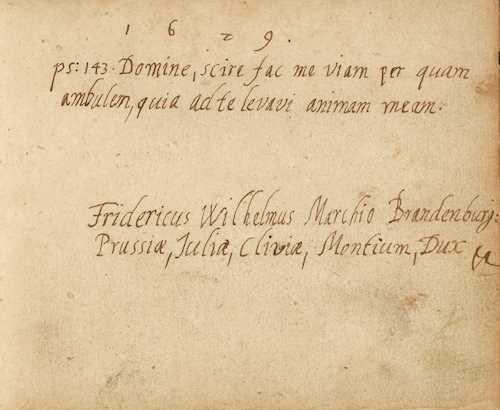 1629.
ps: 143. Domine, scire fac me viam per quam
ambulem, quia ad te levavi animam meam.
Fridericus Wilhelmus Marchio Brandenburg:
Prussiæ, Juliæ, Cliviæ, Montium, Dux